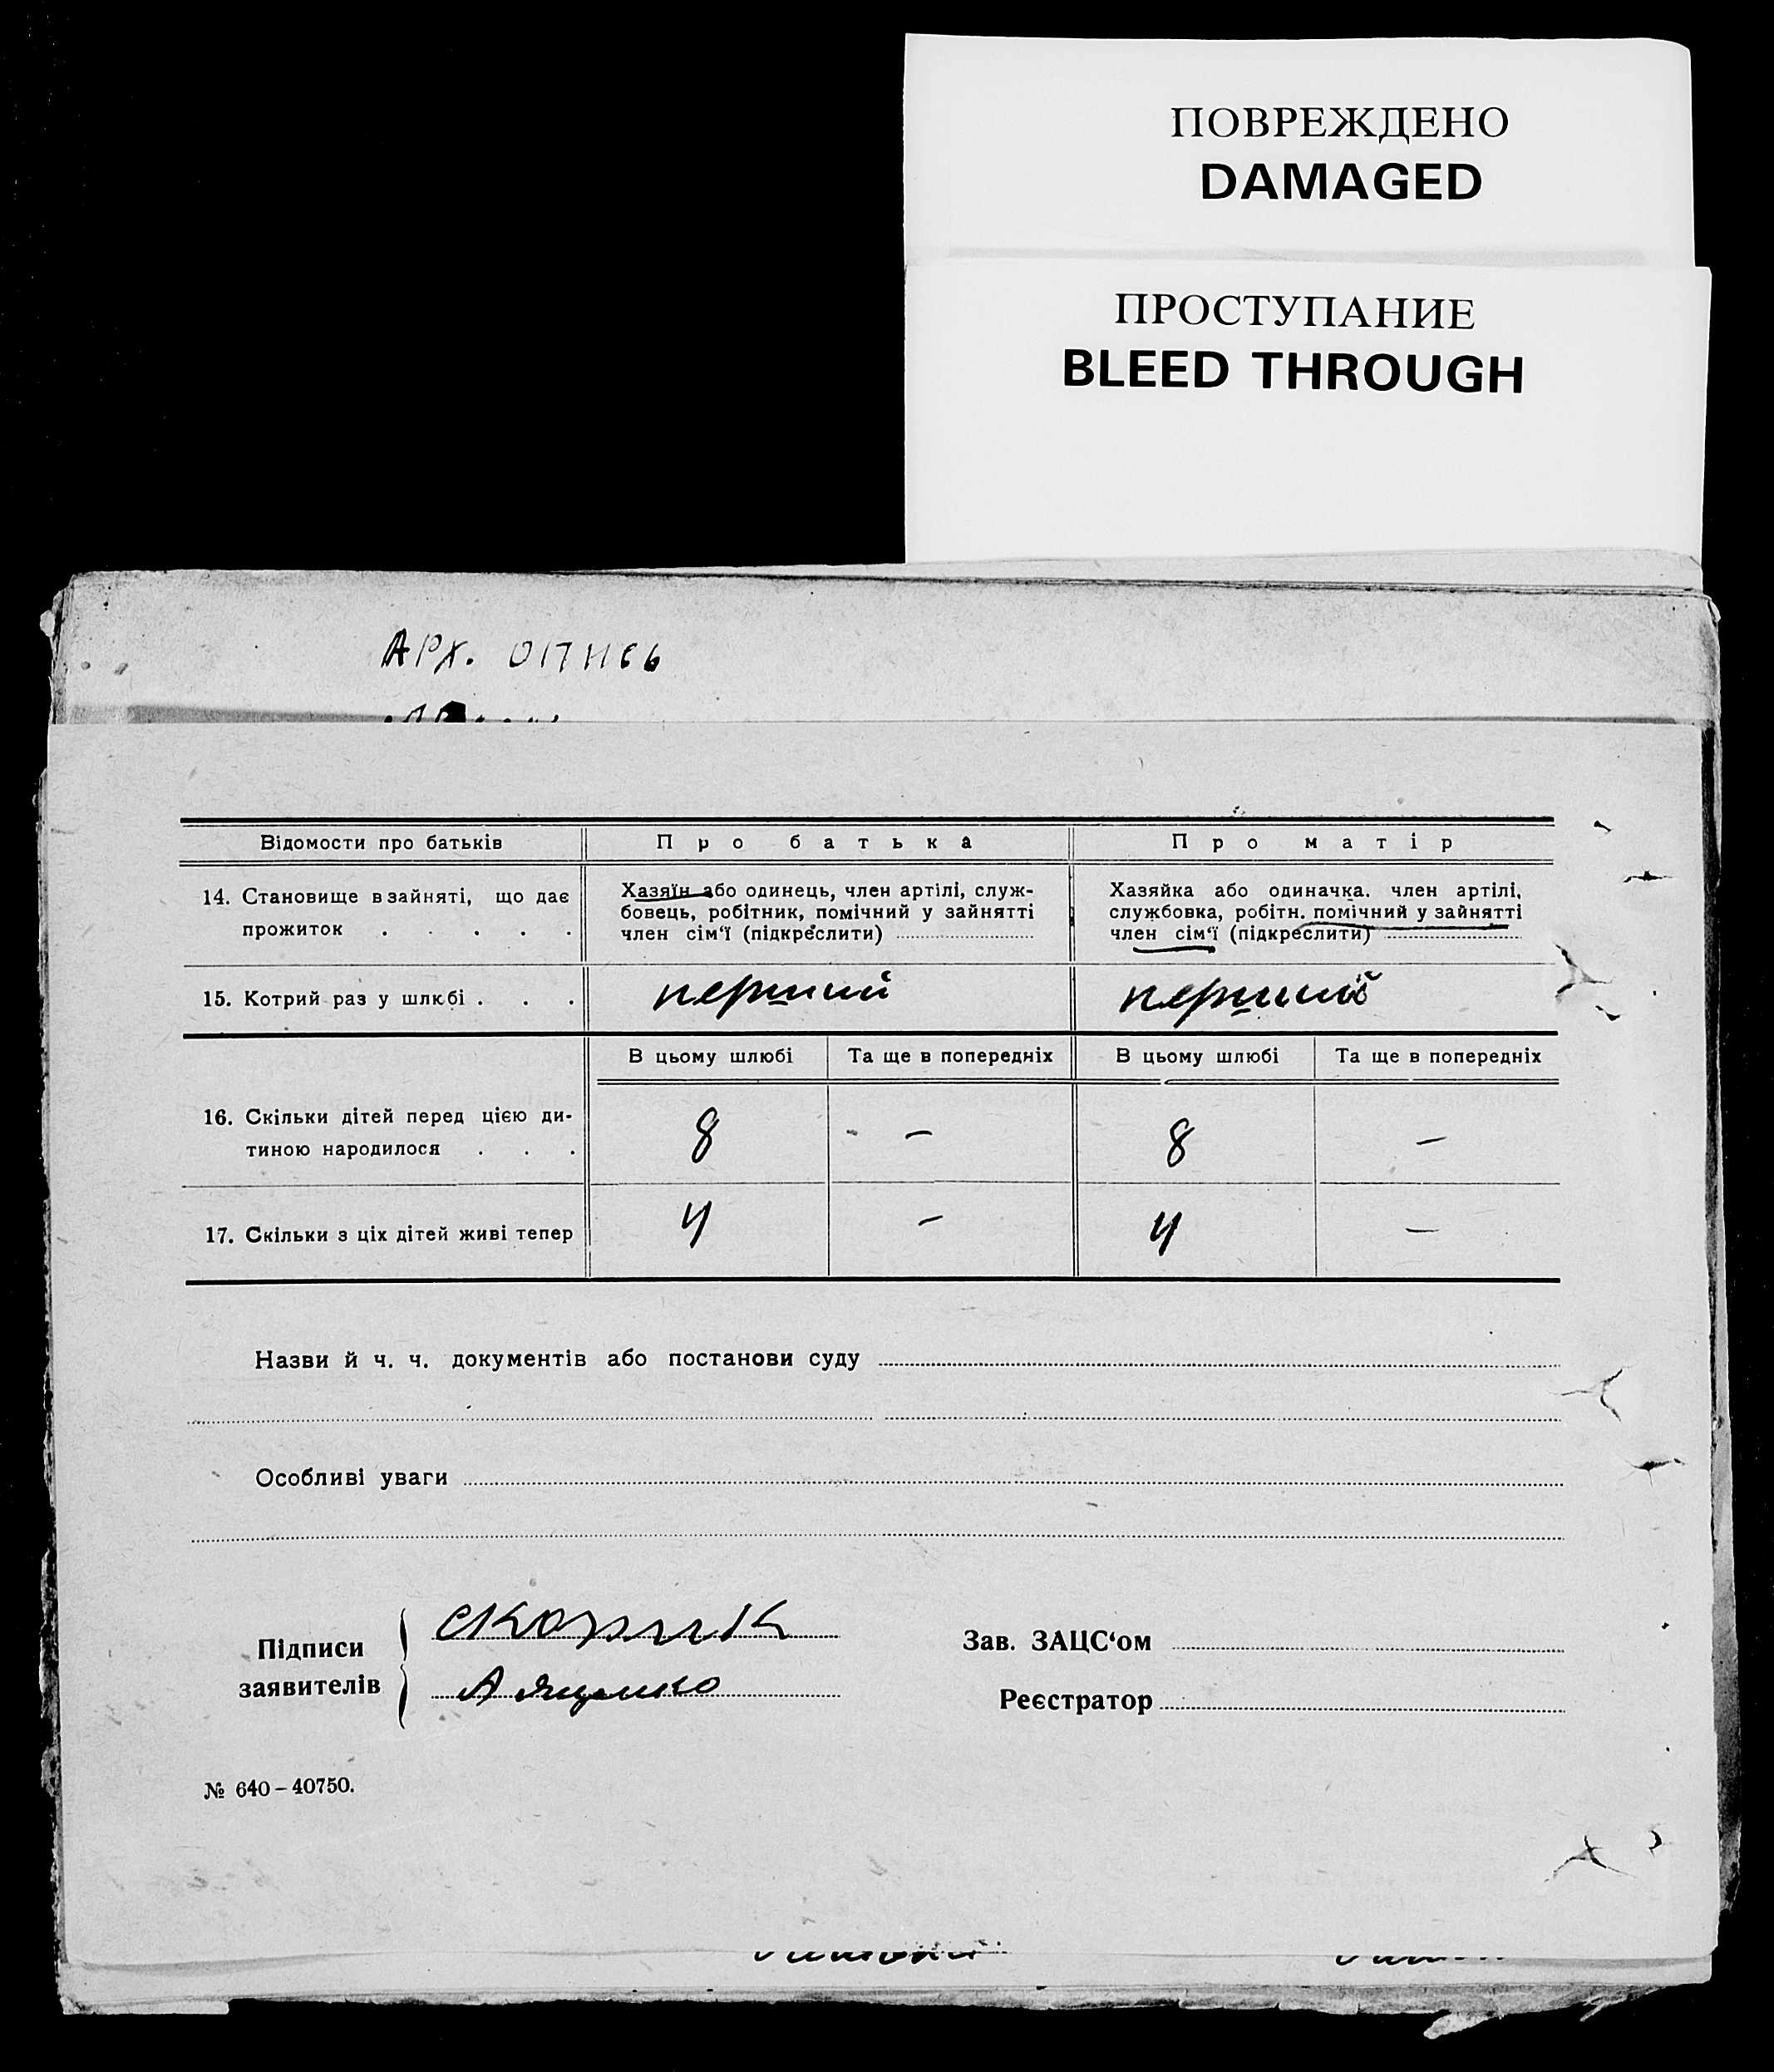 ПОВРЕЖДЕНО
DAMAGED
ПРОСТУПАНИЕ
BLEED THROUGH
АРХ. ОПИСЬ
Відомости про батьків
Про батька
Про матір
14. Становище в зайняті, що дає
прожиток . . . . .
Хазяїн або одинець, член артілі, служ-
бовець, робітник, помічний у зайнятті
член сім‘ї (підкреслити)
Хазяйка або одиначка. член артілі,
службовка, робітн. помічний у зайнятті
член сім‘ї (підкреслити)
15. Котрий раз у шлюбі . . .
перший
перший
В цьому шлюбі
Та ще в попередніх
В цьому шлюбі
Та ще в попередніх
16. Скільки дітей перед цією ди-
тиною народилося . . .
8
-
8
-
17. Скільки з ціх дітей живі тепер
4
-
4
-
Назви й ч. ч. документів або постанови суду
Особливі уваги
Підписи
заявителів
А Яценко
Зав. ЗАЦС‘ом
Реєстратор
№ 640–40750.